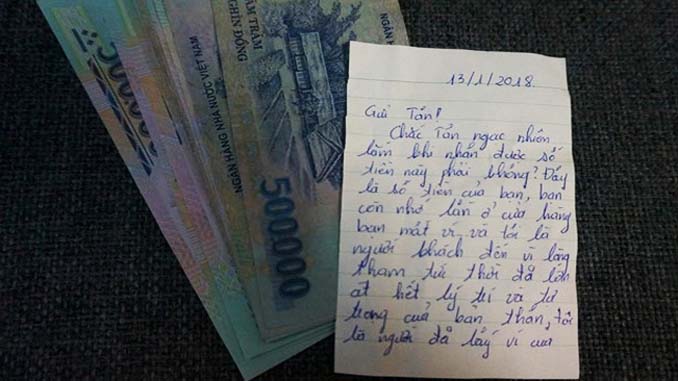 NGÂN HÀNG NHÀ NƯỚC VIỆT NAM
NGÂN HÀNG
500000
13/1/2018.
Gửi Tấn!
Chắc Tấn ngạc nhiên
lắm khi nhận được số
tiền này phải không? Đấy
là số tiền của bạn, bạn
còn nhớ lần ở cửa hàng
bạn mất ví và tôi là
người khách đến vì lòng
tham tức thời đã lấn
át hết lý trí và tự
trọng của bản thân, tôi
là người đã lấy ví của